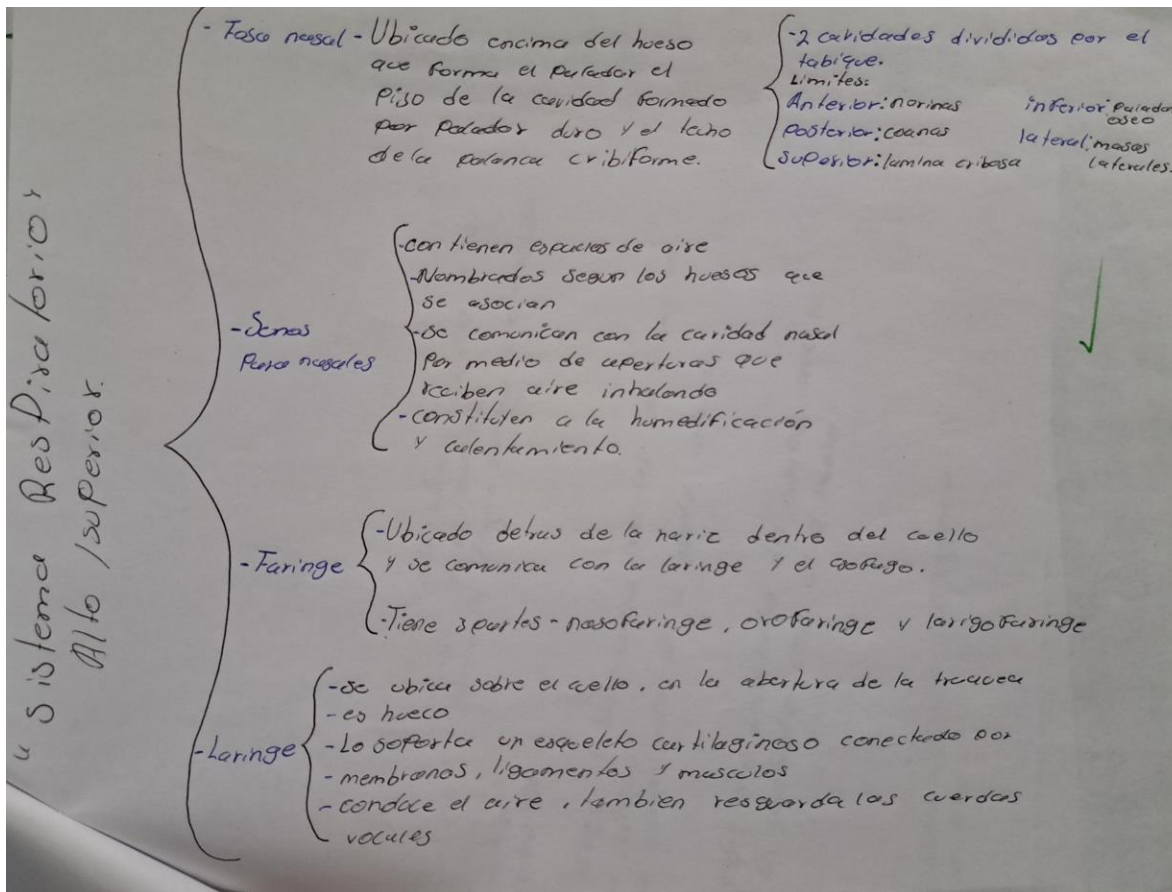 "Sistema Respiratorio"
Alto / superior.
- Fosa nasal - Ubicado encima del hueso
que forma el paladar el
Piso de la cavidad formado
por paladar duro y el techo
de la cribiforme.
- 2 cavidades divididas por el
tabique.
Limites:
Anterior: narinas
Posterior: coanas
Superior: lamina cribosa
inferior: paladar
oseo
lateral: masas
laterales.
- Senos
Para nasales
- contienen espacios de aire
- Nombrados segun los huesos que
se asocian
- se comunican con la cavidad nasal
por medio de aperturas que
reciben aire inhalando
- constituten a la humedificación
y calentamiento.
- Faringe
- Ubicado detras de la nariz dentro del cuello
y se comunica con la laringe y el esofago.
- Tiene 3 partes - nasofaringe, orofaringe y larigofaringe
- Laringe
- se ubica sobre el cuello, en la abertura de la
- es hueco
- Lo soporta un esqueleto cartilaginoso conectado por
- membranas, ligamentos y musculos
- conduce el aire, tambien resguarda las cuerdas
vocales